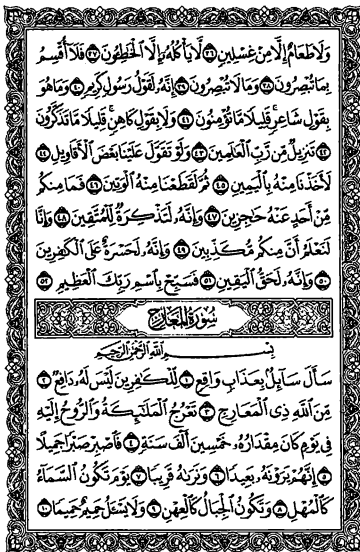 وَلَا طَعَامٌ إِلَّا مِنْ غِسْلِينٍ ٣٦ لَّا يَأْكُلُهُۥٓ إِلَّا ٱلْخَـٰطِـُٔونَ ٣٧ فَلَآ أُقْسِمُ
بِمَا تُبْصِرُونَ ٣٨ وَمَا لَا تُبْصِرُونَ ٣٩ إِنَّهُۥ لَقَوْلُ رَسُولٍ كَرِيمٍ ٤٠ وَمَا هُوَ
بِقَوْلِ شَاعِرٍ ۚ قَلِيلًا مَّا تُؤْمِنُونَ ٤١ وَلَا بِقَوْلِ كَاهِنٍ ۚ قَلِيلًا مَّا تَذَكَّرُونَ
٤٢ تَنزِيلٌ مِّن رَّبِّ ٱلْعَـٰلَمِينَ ٤٣ وَلَوْ تَقَوَّلَ عَلَيْنَا بَعْضَ ٱلْأَقَاوِيلِ ٤٤
لَأَخَذْنَا مِنْهُ بِٱلْيَمِينِ ٤٥ ثُمَّ لَقَطَعْنَا مِنْهُ ٱلْوَتِينَ ٤٦ فَمَا مِنكُم
مِّنْ أَحَدٍ عَنْهُ حَـٰجِزِينَ ٤٧ وَإِنَّهُۥ لَتَذْكِرَةٌ لِّلْمُتَّقِينَ ٤٨ وَإِنَّا
لَنَعْلَمُ أَنَّ مِنكُم مُّكَذِّبِينَ ٤٩ وَإِنَّهُۥ لَحَسْرَةٌ عَلَى ٱلْكَـٰفِرِينَ
٥٠ وَإِنَّهُۥ لَحَقُّ ٱلْيَقِينِ ٥١ فَسَبِّحْ بِٱسْمِ رَبِّكَ ٱلْعَظِيمِ ٥٢
سُورَةُ المَعَارِجِ
بِسْمِ ٱللَّهِ ٱلرَّحْمَـٰنِ ٱلرَّحِيمِ
سَأَلَ سَآئِلٌۢ بِعَذَابٍ وَاقِعٍ ١ لِّلْكَـٰفِرِينَ لَيْسَ لَهُۥ دَافِعٌ ٢
مِّنَ ٱللَّهِ ذِى ٱلْمَعَارِجِ ٣ تَعْرُجُ ٱلْمَلَـٰٓئِكَةُ وَٱلرُّوحُ إِلَيْهِ
فِى يَوْمٍ كَانَ مِقْدَارُهُۥ خَمْسِينَ أَلْفَ سَنَةٍ ٤ فَٱصْبِرْ صَبْرًا جَمِيلًا
٥ إِنَّهُمْ يَرَوْنَهُۥ بَعِيدًا ٦ وَنَرَىٰهُ قَرِيبًا ٧ يَوْمَ تَكُونُ ٱلسَّمَآءُ
كَٱلْمُهْلِ ٨ وَتَكُونُ ٱلْجِبَالُ كَٱلْعِهْنِ ٩ وَلَا يَسْـَٔلُ حَمِيمٌ حَمِيمًا ١٠